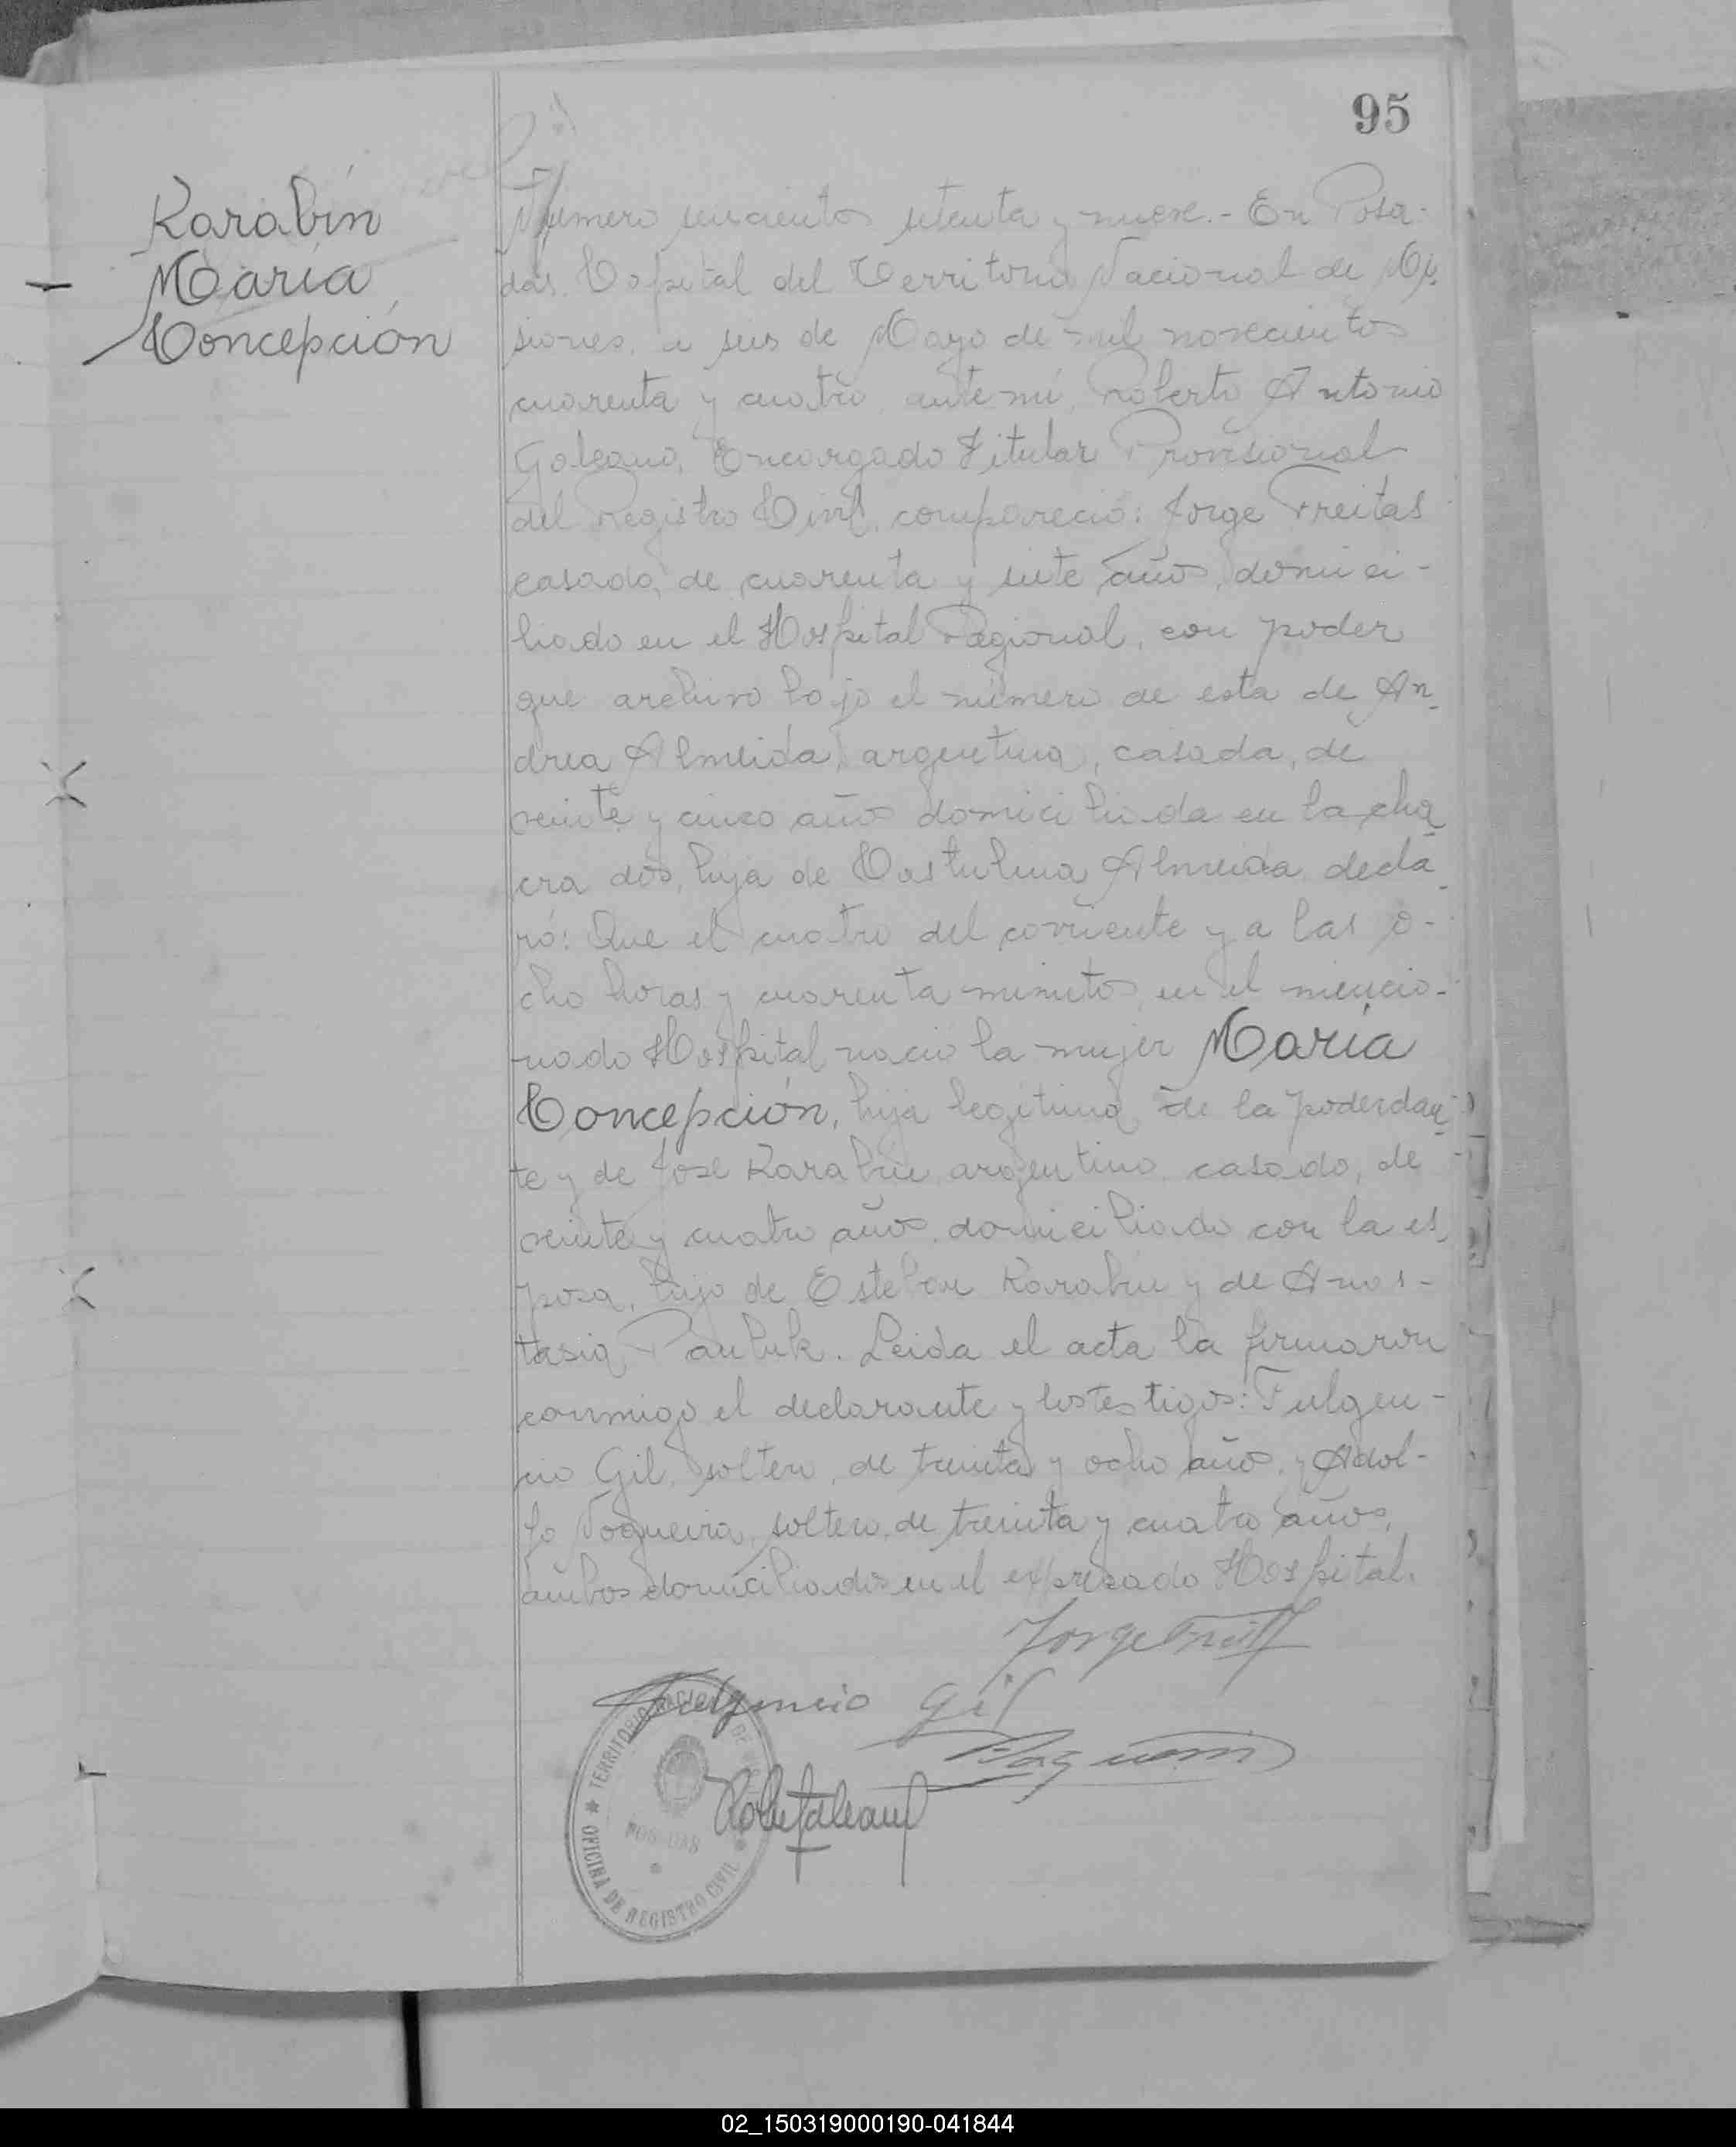 95
Karabin
María
Concepción
Número seiscientos setenta y nueve.- En Posa-
das, Capital del Territorio Nacional de Mi-
siones, a seis de Mayo de mil novecientos
cuarenta y cuatro, ante mí, Roberto Antonio
Galeano, Encargado Titular Provisional
del Registro Civil, compareció: Jorge Freitas
casado, de cuarenta y siete años, domici-
liado en el Hospital Regional, con poder
que archivo bajo el número de esta de An-
drea Almeida, argentina, casada, de
veinte y cinco años domiciliada en la cha-
cra dos, hija de Castulina Almeida, decla-
ró: Que el cuatro del corriente y a las o-
cho horas y cuarenta minutos, en el mencio-
nado Hospital nació la mujer María
Concepción, hija legítima de la poderdan-
te y de José Karabin, argentino, casado, de
veinte y cuatro años, domiciliado con la es-
posa, hijo de Esteban Karabin y de Anas-
tasia Pauluk. Leida el acta la firmaron
conmigo el declarante y los testigos: Fulgen-
cio Gil, soltero, de treinta y ocho años, y Adol-
fo Nogueira, soltero, de treinta y cuatro años,
ambos domiciliados en el expresado Hospital.
Jorge Freitas
Fulgencio Gil
Nogueira
Robt Galeano
TERRITORIO NACIONAL DE
POSADAS
OFICINA DE REGISTRO CIVIL
02_150319000190-041844